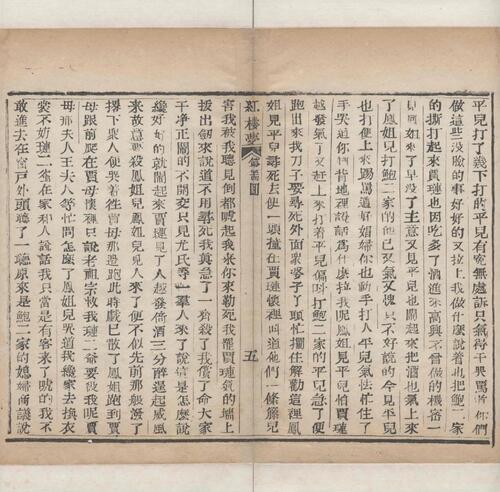 平兒打了幾下打的平兒有寃無處訴只氣得干哭罵道你們
做這些沒臉的事好好的又拉上我做什麽說着也把鮑二家
的撕打起來賈璉也因吃多了酒進來高興不曾做的機密一
見鳳姐來了早沒了主意又見平兒也鬧起來把酒也氣上來
了鳳姐兒打鮑二家的他已又氣又愧只不好說的今見平兒
也打便上來踢罵道好娼婦你也動手打人平兒氣怯忙住了
手哭道你們背地裡說話爲什麽拉我呢鳳姐見平兒怕賈璉
越發氣了又赶上來打着平兒偏叫打鮑二家的平兒急了便
跑出來找刀子要尋死外面衆婆子丫頭忙攔住解勸這裡鳳
姐見平兒尋死去便一頭撞在賈璉懷裡叫道他們一條籐兒
紅樓夢 第 囬 五
害我被我聽見倒都唬起我來你來勒死我罷賈璉氣的墻上
拔出劒來說道不用尋死我眞急了一齊殺了我償了命大家
干净正鬧的不開交只見尤氏等一羣人來了說這是怎麽說
纔好好的就鬧起來賈璉見了人越發倚酒三分醉逞起威風
來故意要殺鳳姐兒鳳姐兒見人來了便不似先前那般潑了
撂下衆人便哭着徃賈母那邊跑此時戲已散了鳳姐跑到賈
母跟前爬在賈母懷裡只說老祖宗救我璉二爺要殺我呢賈
母那夫人王夫人等忙問怎麽了鳳姐兒哭道我纔家去換衣
裳不妨璉二爺在家和人說話我只當是有客來了唬的我不
敢進去在窗戶外頭聽了一聽原來是鮑二家的媳婦商議說